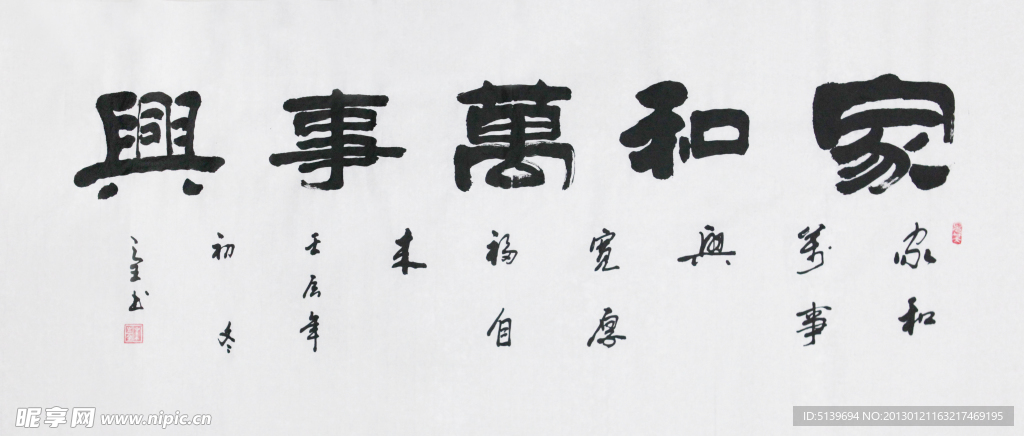 家和萬事興
家和
萬事
興
寬厚
福自
来
壬辰年
初冬
昵享网 www.nipic.cn
ID:5139694 NO:20130121163217469195